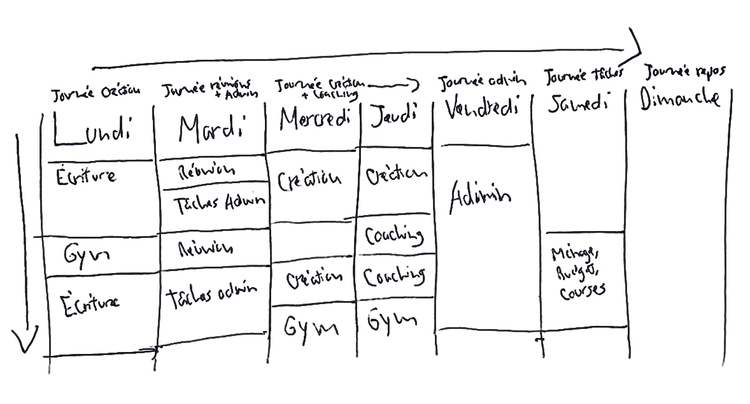 Journée création
Journée réunions
+ Admin
Journée création
+ Coaching
Journée admin
Journée tâches
Journée repos
Lundi
Mardi
Mercredi
Jeudi
Vendredi
Samedi
Dimanche
Écriture
Réunion
Tâches Admin
Création
Création
Admin
Gym
Réunion
Coaching
Ménage,
Budget,
Courses
Écriture
Tâches admin
Création
Coaching
Gym
Gym